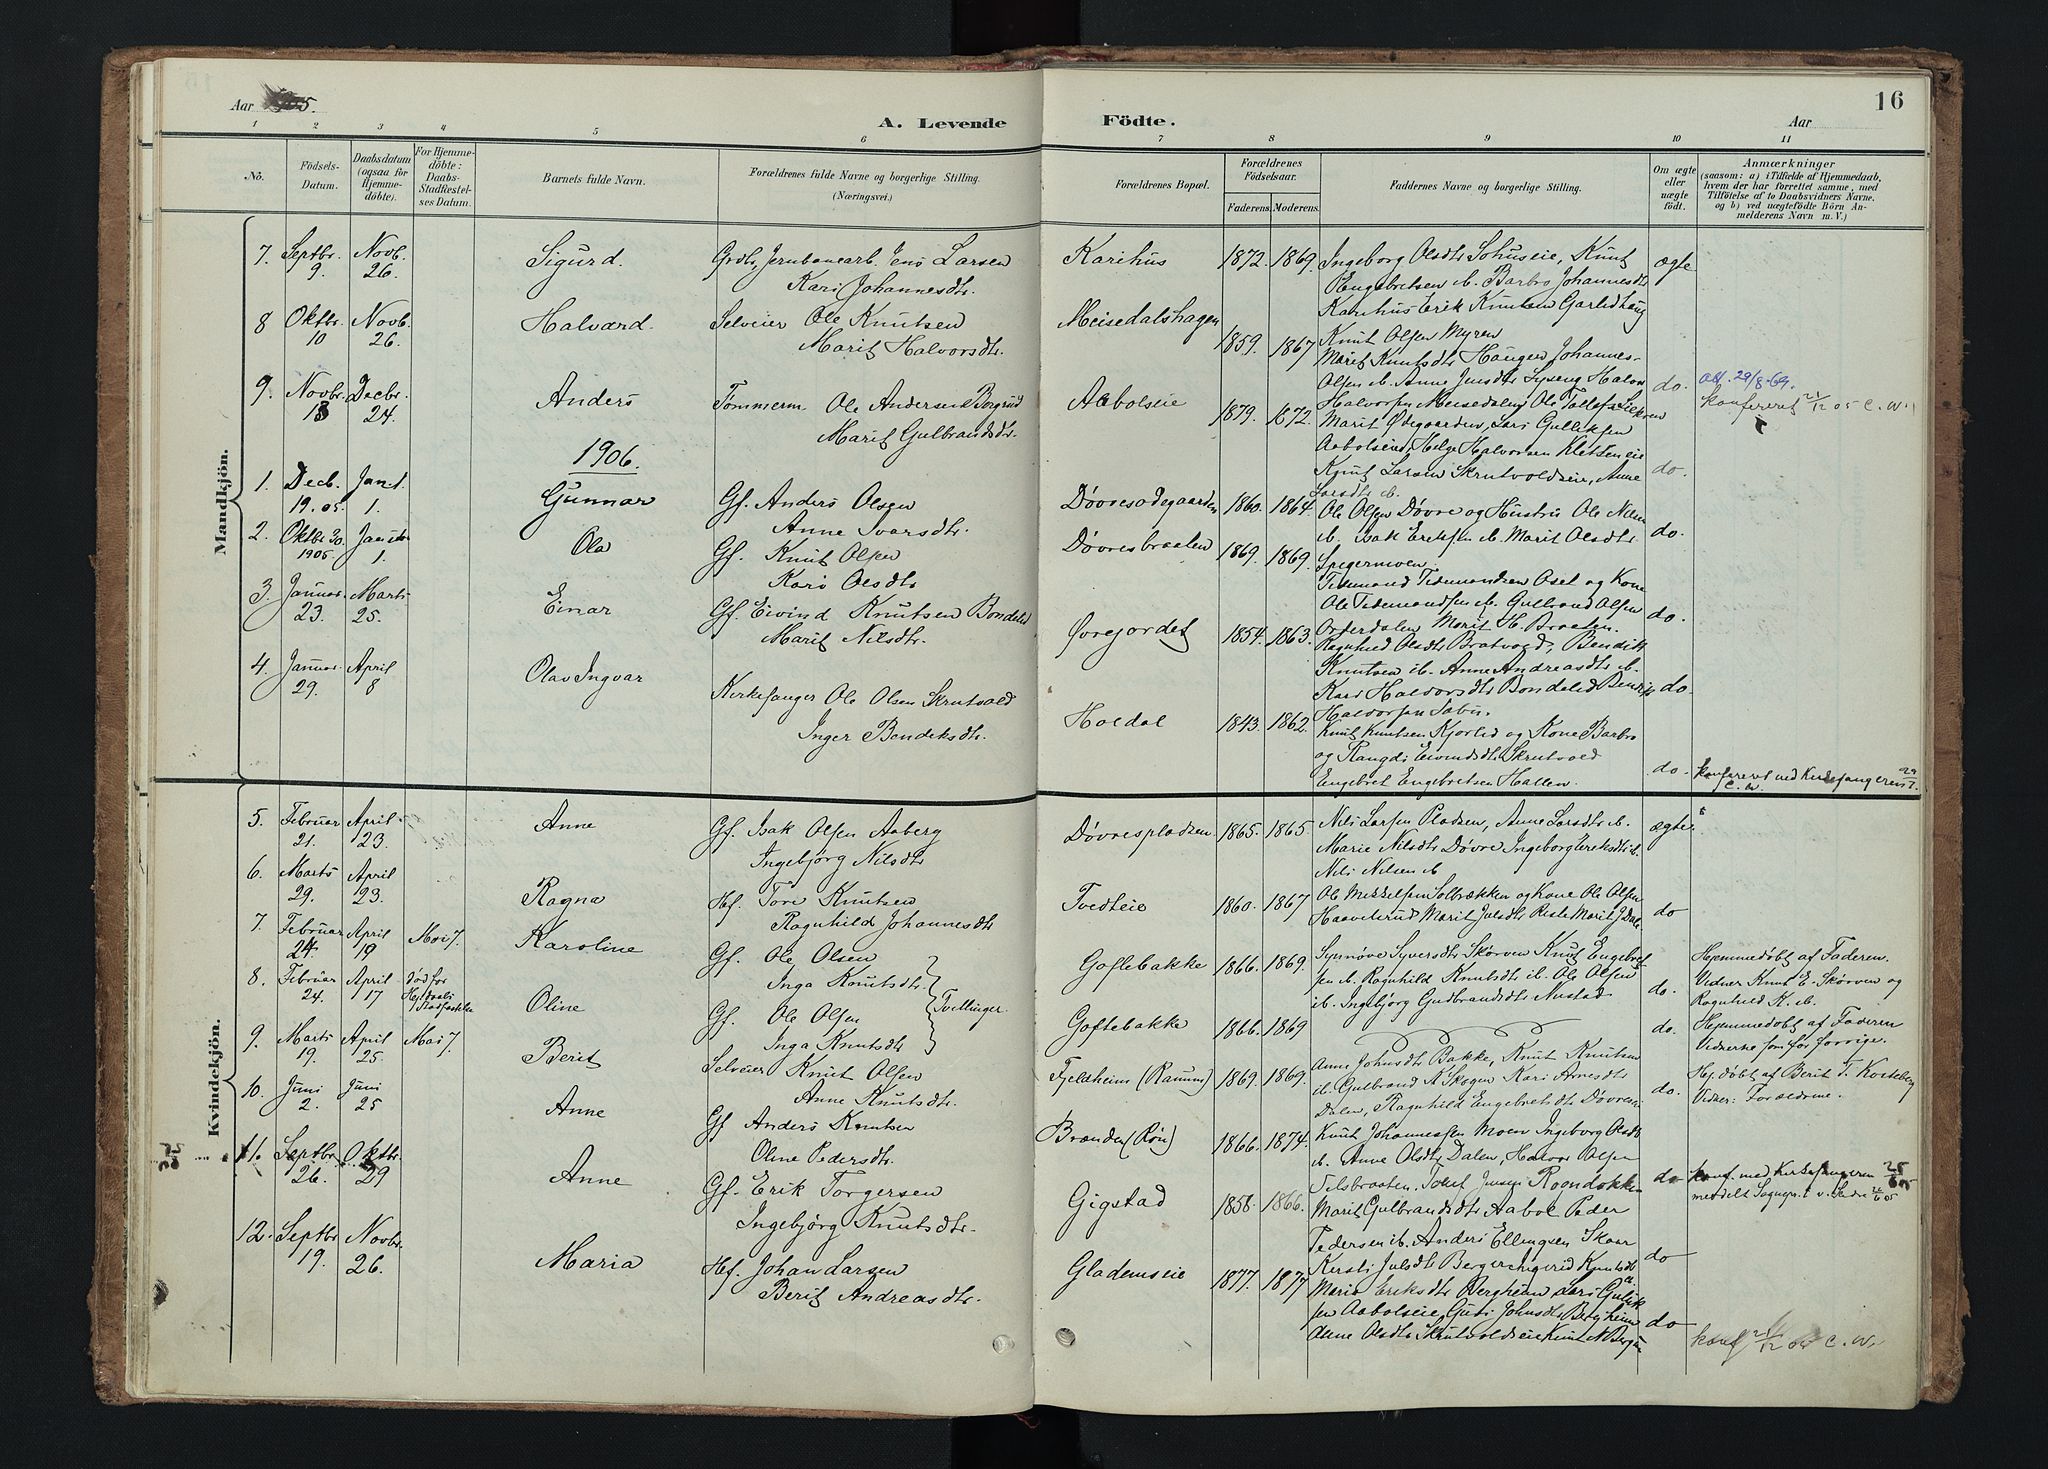 Aar 1905.
A. Levende
Födte.
Aar
16
1 2 3 4 5 6 7 8 9 10 11
Nô.
Födsels-
Datum.
Daabsdatum
(ogsaa for
Hjemme-
döbte).
For Hjemme-
döbte:
Daabs-
Stadfæstel-
ses Datum.
Barnets fulde Navn.
Forældrenes fulde Navne og borgerlige Stilling.
(Næringsvei.)
Forældrenes Bopæl.
Forældrenes
Födselsaar.
Faderens. Moderens.
Faddernes Navne og borgerlige Stilling.
Om ægte
eller
uægte
födt.
Anmærkninger
(saasom: a) i Tilfælde af Hjemmedaab,
hvem der har forrettet samme, med
Tilföielse af to Daabsvidners Navne,
og b) ved uægtefödte Börn An-
melderens Navn m. V.)
Mandkjön.
7. Septbr. 9. Novb. 26. Sigurd. Grdbr, Jernbanearb. Jens Larsen
Kari Johannesdtr.
Karihus 1872. 1869. Ingeborg Olsdtr Sohuseie, Knut
Engebretsen ib. Barbro Johannesdtr
Karihus Erik Knutsen Garlidhaug
Knut Olsen Myren
ægte
8 Oktbr. 10 Novb. 26. Halvard. Selveier Ole Knutsen
Marit Halvorsdtr.
Meisedalshagen 1859. 1867 Marit Knutsdtr Haugen Johannes
Olsen ib. Anne Jensdtr Lyseng Halvor
Halvorsen Meisedalen, Ole Tollefs
do. 29/8-69.
9. Novbr. 18 Decbr. 24. Anders Tömmerm Ole Andersen Borgrud
Marit Gulbrandsdtr.
Aabolseie 1879. 1872. Marit Ødegaarden, Lars Gulliksen
Aabolseie, Helge Halvorsen Kletseneie
Knut Larsen Skrutvoldseie, Anne
Larsdtr ib.
do. konfereret 21/12 05 C. W.
1906.
1. Decb. 19. 05. Jan. 1. Gunnar Gf. Anders Olsen
Anne Ivarsdtr.
Døvresødegaarden 1860. 1864. Ole Olsen Døvre og Hustru Ole Nilsen
ib. Isak Eriksen ib. Marit Olsdtr
Spegermoen.
do.
2. Oktbr 30. 1905. Januar 1. Ola Gf. Knut Olsen
Kari Olsdtr
Døvresbraaten 1869. 1869. Tidemand Tidemandsen Aset og Kone
Ole Tidemandsen ib. Gulbrand Olsen
Marit H. Braaten.
do.
3. Januar. 23. Marts 25. Einar Gf. Eivind Knutsen Bondelid
Marit Nilsdtr.
Øvrejordet 1854. 1863. Ragnhild Olsdtr Bratvold, Bendik
Knutsen ib. Anne Andreasdtr ib.
Kari Halvorsdtr Bondelid
do.
4. Januar. 29. April 8 Olav Ingvar Kirkesanger Ole Olsen Skrutvold
Inger Bendiksdtr.
Holdal 1843. 1862. Knut Knutsen Kjorlid og Kone Barbro
og Rangdi Eivindsdtr Skrutvold
Engebret Engebretsen Hallen.
do. konfereret ved Kirkesangeren
C. W.
Kvindekjön.
5. Februar 21. April 23. Anne Gf. Isak Olsen Aaberg
Ingebjørg Nilsdtr
Døvrespladsen. 1865. 1865. Nils Larsen Pladsen, Anne Larsdtr ib.
Marie Nilsdtr Døvre Ingeborg Eriksdtr ib.
Nils Nilsen ib
ægte
6. Marts 29. April 23. Ragna Hf. Tore Knutsen
Ragnhild Johannesdtr
Tvedteie 1860. 1867 Ole Mikkelsen Solbrækken og Kone Ole Olsen
Haavelsrud Marit Julsdtr Riste Marit J Dale
do
7. Februar 24. April 19 Mai 7. Karoline Gf. Ole Olsen
Inga Knutsdtr.
Goflebakke 1866. 1869. Synnøve Syversdtr Skørven Knut Engebret
sen ib. Ragnhild Knutsdtr ib. Ole Olsen
ib. Ingebjørg Gudbrandsdtr Nustad
do. Hjemmedøbt af Faderen.
Vidner Knut E. Skørven og
Ragnhild K. ib.
8. Februar 24. April 17 død før
Hjdaabs
Stadfæstelse
Oline Gf. Ole Olsen
Inga Knutsdtr
Tvillinger.
Goflebakke 1866. 1869 do. Hjemmedøbt af Faderen
Vidnerne som for forrige.
9. Marts 19. April 25 Mai 7. Berit Selveier Knut Olsen
Anne Knutsdtr.
Fjeldheim (Ranum) 1869. 1869. Anne Johnsdtr Bakke, Knut Knutsen
ib Gulbrand K Skogen Kari Arnesdtr
Dalen, Ragnhild Engebretsdtr Døvre
do. Hj.døbt af Berit T. Kosteberg
Vidner: Forældrene.
10. Juni 2. Juni 25 Anne Gf Anders Knutsen
Oline Pedersdtr.
Brænden (Røn) 1866. 1874. Knut Johannessen Moen Ingeborg Olsdtr
ib. Anne Olsdtr Dalen, Halvor Olsen
do
11. Septbr 26. Oktbr. 29 Anne Gf. Erik Torgersen
Ingebjørg Knutsdtr.
Gigstad 1858. 1866. Marit Gulbrandsdtr Aabol Peder
Pedersen ib. Anders Ellingsen Skaar
do konf. med Kirkesangeren
meddelt Sognepr.
12. Septbr 19. Novbr. 26. Maria Hf. Johan Larsen
Berit Andreasdtr.
Glademseie 1877. 1877 Maria Eriksdtr Bergheim Lars Gulik
sen Aabolseie, Guri Johnsdtr Bergheim
Anne Olsdtr Skrutvoldseie Knut N Berge
do konf 21/12 05 C. W.